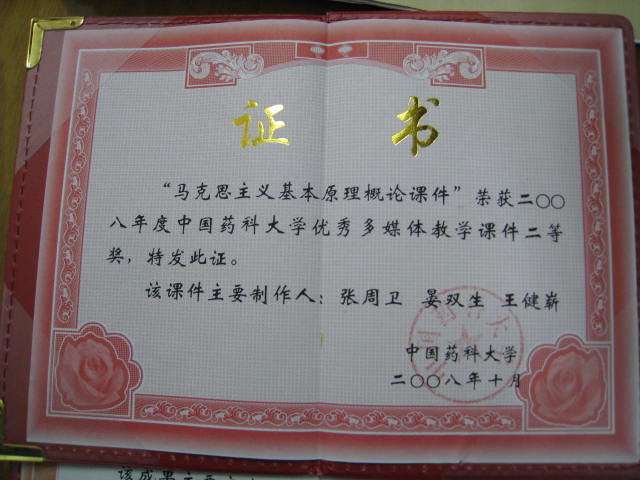 证 书
“马克思主义基本原理概论课件”荣获二〇〇
八年度中国药科大学优秀多媒体教学课件二等
奖，特发此证。
该课件主要制作人：张周卫 晏双生 王健崭
中国药科大学
二〇〇八年十月